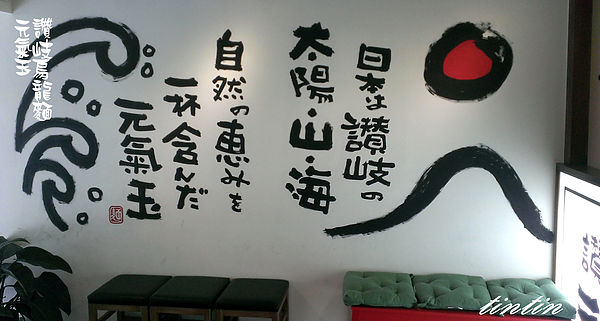 日本は讃岐の
太陽・山・海
自然の恵みを
一杯含んだ
元氣玉
麺
讚岐烏龍麵
元氣玉
tintin